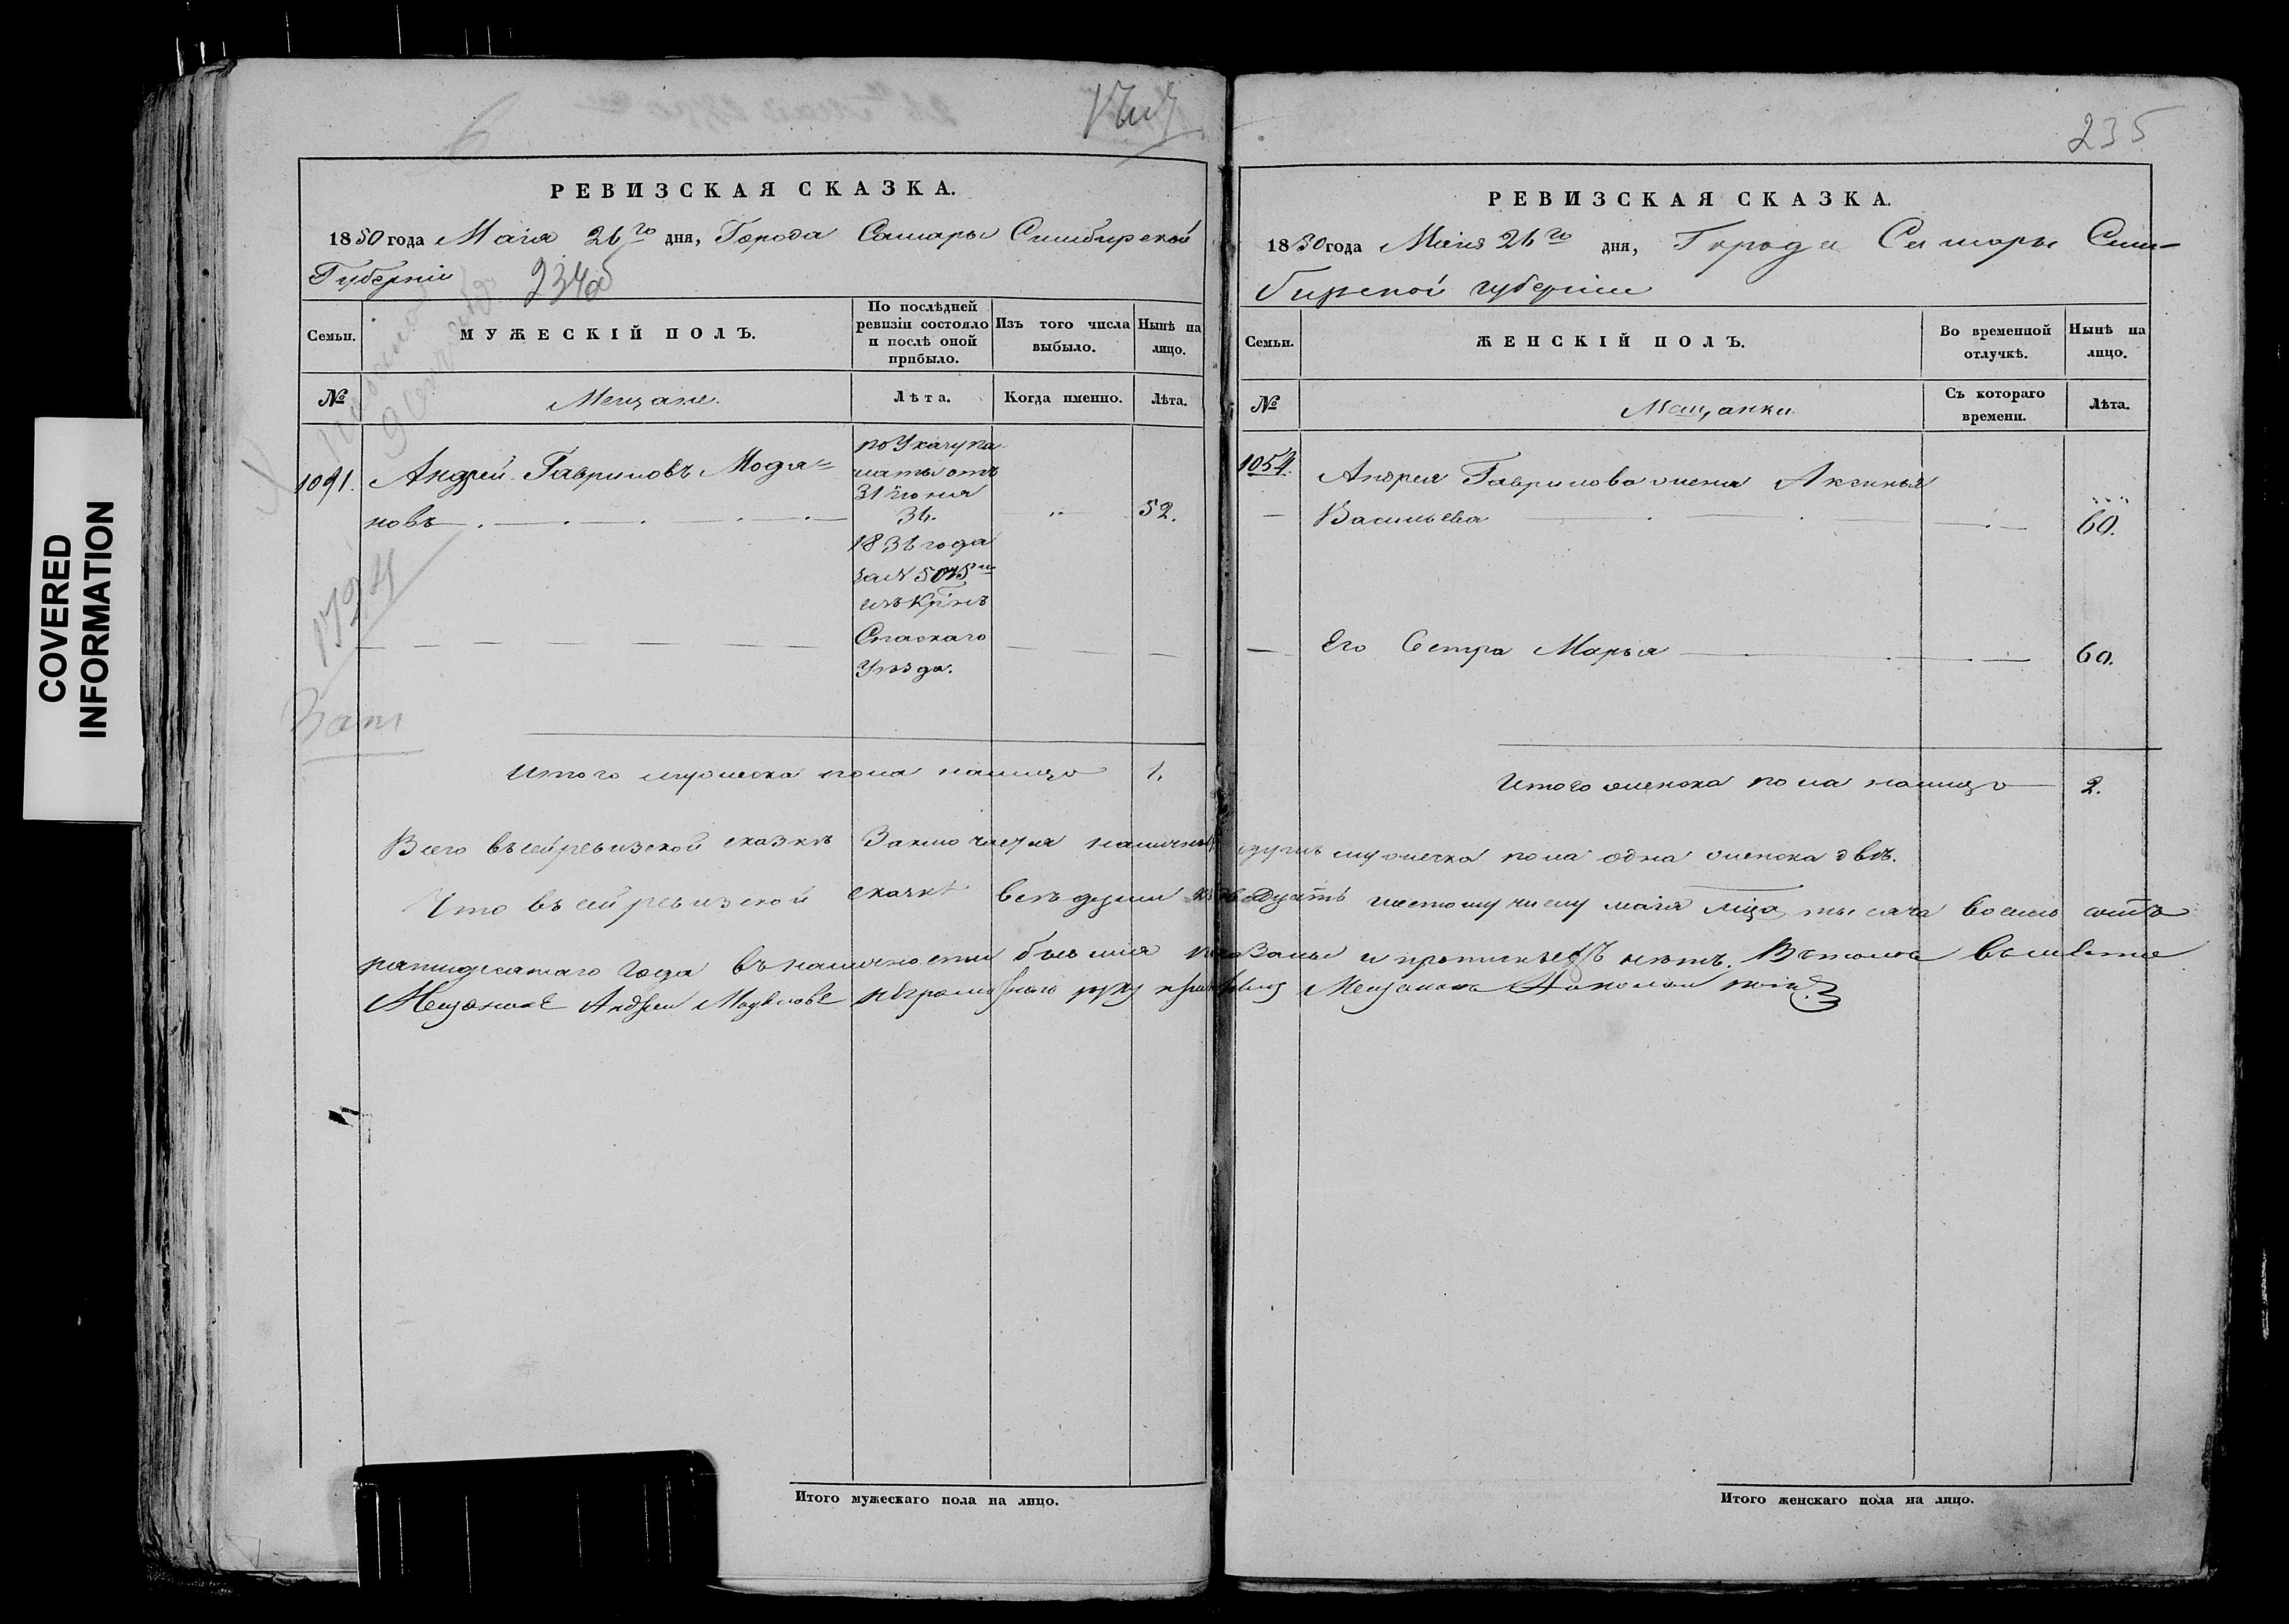 COVERED
INFORMATION
РЕВИЗСКАЯ СКАЗКА.
1850 года Маія 26го дня, Города Самары Симбирской
Губерніи
234об
Семьи.
МУЖЕСКІЙ ПОЛЪ.
По послѣдней
ревизіи состояло
и послѣ оной
прибыло.
Изъ того числа
выбыло.
Нынѣ на
лицо.
№
Мещане.
Лѣта.
Когда именно.
Лѣта.
1091.
Андрей Гавриловъ Мода=
новъ
по Указу па
латы отъ
31 Іюня
34.
1836 года
за N 5045м
изъ Кр҃нъ
Спаскаго
Уѣзда.
52.
1794
Зап
Итого мужеска пола налицо 1.
235
РЕВИЗСКАЯ СКАЗКА.
1850 года Маія 26го дня, Города Самары Сим-
бирской губерніи
Семьи.
ЖЕНСКІЙ ПОЛЪ.
Во временной
отлучкѣ.
Нынѣ на
лицо.
№
Мещанки.
Съ котораго
времени.
Лѣта.
1054.
Андрея Гаврилова жена Аксинья
Васильева 60.
Его Сестра Марья 60.
Итого женска пола налицо 2.
Всего въ сей ревизской сказкѣ Заключается наличныхъ душъ мужеска пола одна женска двѣ.
Что въ сей ревизской скаскѣ всѣ души къ двадцать шестому числу маія м҃ца тысяча восемь сотъ
пятидесятаго года въ наличности бывшія показаны и прописныхъ нѣтъ. Въ томъ
Мещанинъ Андрей руку Мещанинъ
Итого мужескаго пола на лицо.
Итого женскаго пола на лицо.